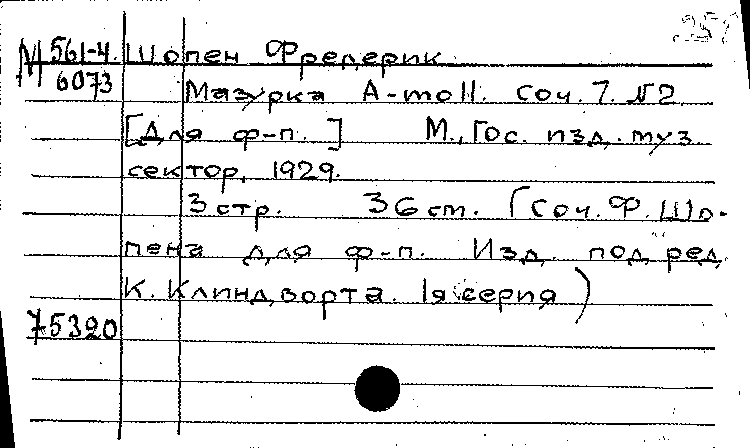 257
М 561-4. Шопен Фредерик
6073
Мазурка A-moll. Соч. 7. №2
[Для ф-п.] М., Гос. изд. муз.
сектор, 1929.
3 стр. 36 ст. (Соч. Ф. Шо-
пена для ф-п. Изд. под ред.
К. Клиндворта. 1я серия)
75320